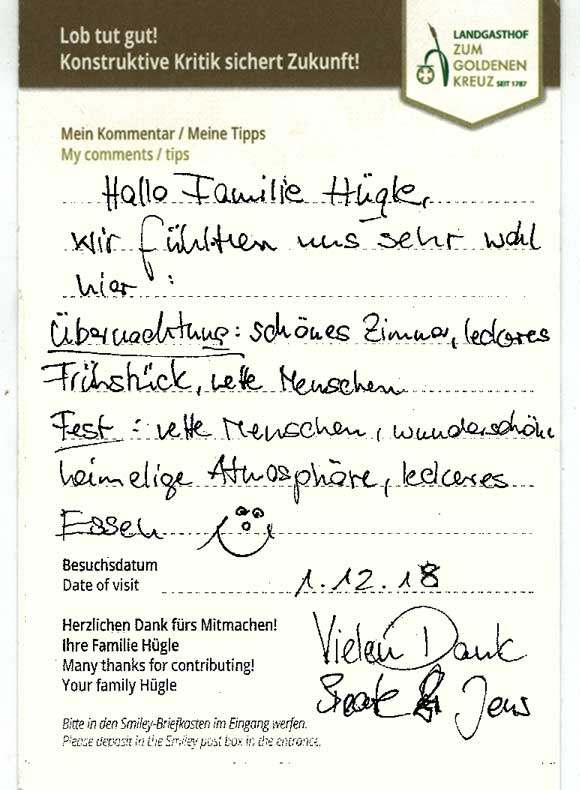 Lob tut gut!
Konstruktive Kritik sichert Zukunft!
LANDGASTHOF
ZUM
GOLDENEN
KREUZ SEIT 1787
Mein Kommentar / Meine Tipps
My comments / tips
Hallo Familie Hügle,
wir fühlten uns sehr wohl
hier :
Übernachtung: schönes Zimmer, leckeres
Frühstück, nette Menschen
Fest : nette Menschen, wunderschöne
heimelige Atmosphäre, leckeres
Essen
Besuchsdatum
Date of visit
1.12.18
Herzlichen Dank fürs Mitmachen!
Ihre Familie Hügle
Many thanks for contributing!
Your family Hügle
Vielen Dank
& Jens
Bitte in den Smiley-Briefkasten im Eingang werfen.
Please deposit in the Smiley post box in the entrance.